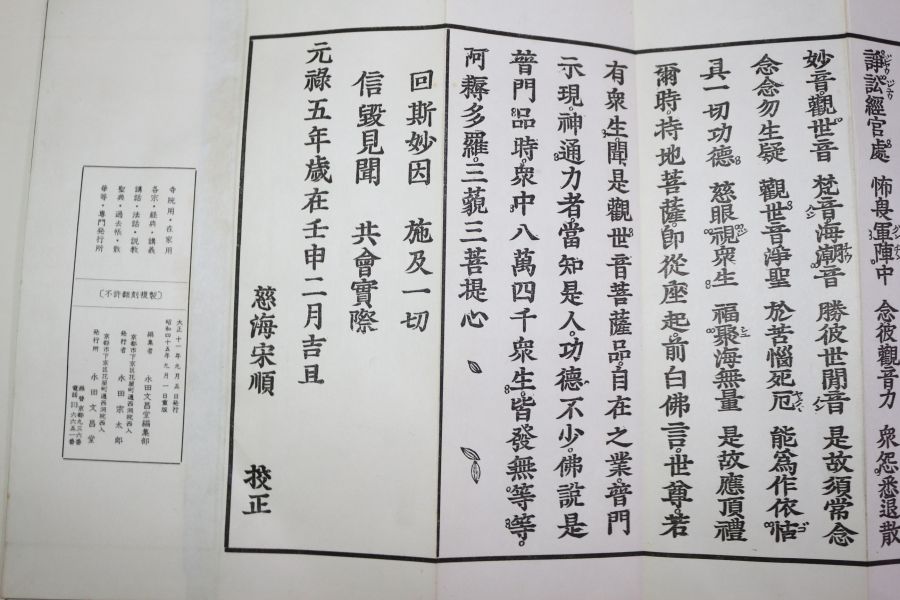 諍訟經官處 怖畏軍陣中 念彼觀音力 衆怨悉退散
妙音觀世音 梵音海潮音 勝彼世間音 是故須常念
念念勿生疑 觀世音淨聖 於苦惱死厄 能爲作依怙
具一切功德 慈眼視衆生 福聚海無量 是故應頂禮
爾時持地菩薩。卽從座起。前白佛言。世尊。若
有衆生。聞是觀世音菩薩品。自在之業。普門
示現。神通力者。當知是人。功德不少。佛說是
普門品時。衆中八萬四千衆生。皆發無等等。
阿耨多羅。三藐三菩提心。
回斯妙因 施及一切
信毀見聞 共會實際
元祿五年歲在壬申二月吉旦
慈海宋順 挍正
寺院用・在家用
各宗・経典・講義
講話・法話・説教
聖典・過去帳・数
華等・専門発行所
〔不許翻刻複製〕
大正十一年九月五日発行
昭和四十五年九月一日重版
編集者 永田文昌堂編集部
京都市下京区花屋町通西洞院西入
発行者 永田宗太郎
京都市下京区花屋町通西洞院西入
発行所 永田文昌堂
振替京都九三六番
電話 六六五一番